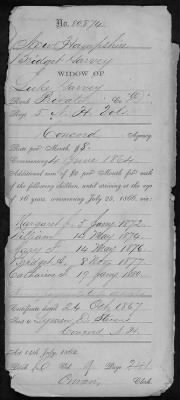 No. 80,874
New Hampshire
Bridget Garvey
WIDOW OF
Luke Garvey
Rank Private, Co. "G"
Reg't 5 N. H. Vols
Concord Agency
Rate per Month $8.
Commencing June 1864
Additional sum of $2 per month for each
of the following children, until arriving at the age
of 16 years, commencing July 25, 1866, viz:
Margaret J. 3 Jany 1872.
William 14 May 1874.
14 May 1876.
Bridget A. 8 1877
Catharine 19 Jany
Certificate dated 24 Oct, 1867
Sent to Lyman D. Stevens
Concord N.H.
Act 14th July, 1862.
Book D Vol. A Page 241
Clerk.